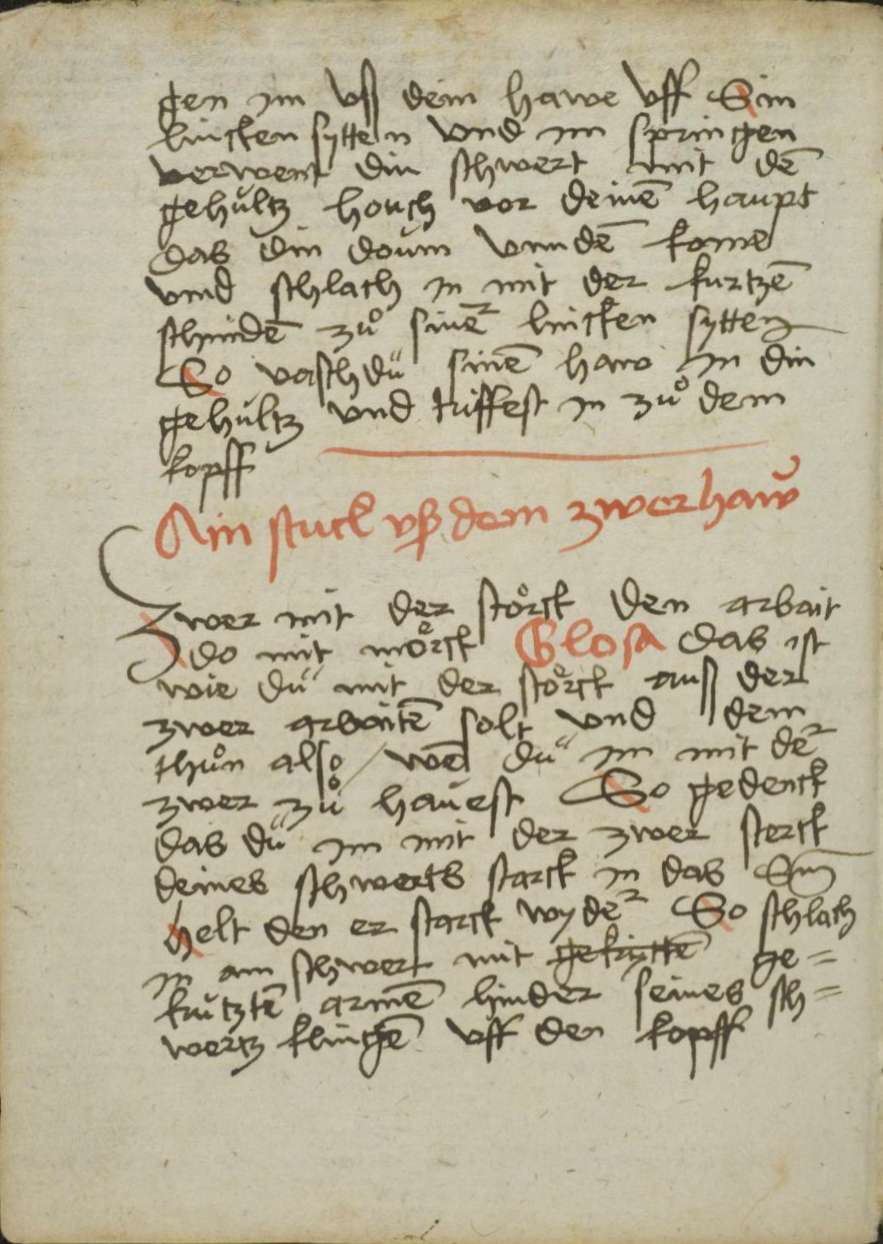 gen im vſſ dem hawe vff Sin
lincken sytten vnd im springen
verwent din schwert mit dē
gehültz houch vor deinē haupt
das din doum vnndē kome
vnd schlach in mit der kurtzē
schnidē zů sineꝛ lincken sytten
So vasch dü sinē haw in din
gehültz vnd triffest in zů dem
kopff
Ain stuck vß dem zwerhaw̄
Zwer mit der stoͤrck den arbait
do mit moͤrck Glosa das ist
wie dü mit der stoͤrck auſſ der
zwer arbaitē solt vnd dem
thůn also / wē dü im mit deꝛ
zwer zů hauest So gedenck
das dü im mit der zwer sterck
deines schwerts starck in das Sin
helt den er starck wydeꝛ So schlach
in am schwert mit gekrüttē ge=
krutztē armē hinder seines sch=
wertz klingē vff den kopff